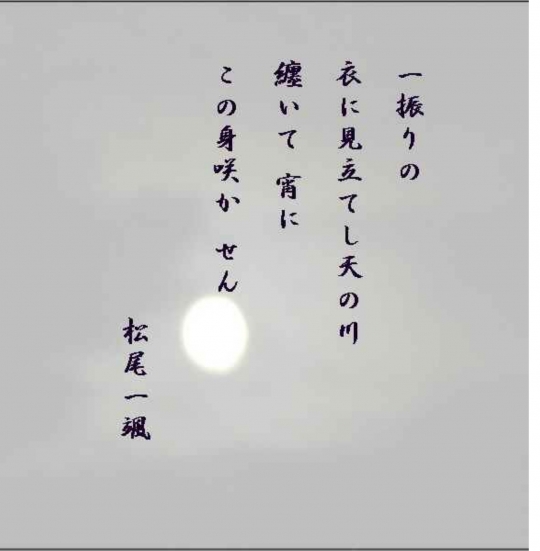 一振りの
衣に見立てし天の川
纏いて 宵に
この身咲か せん
松尾一颯